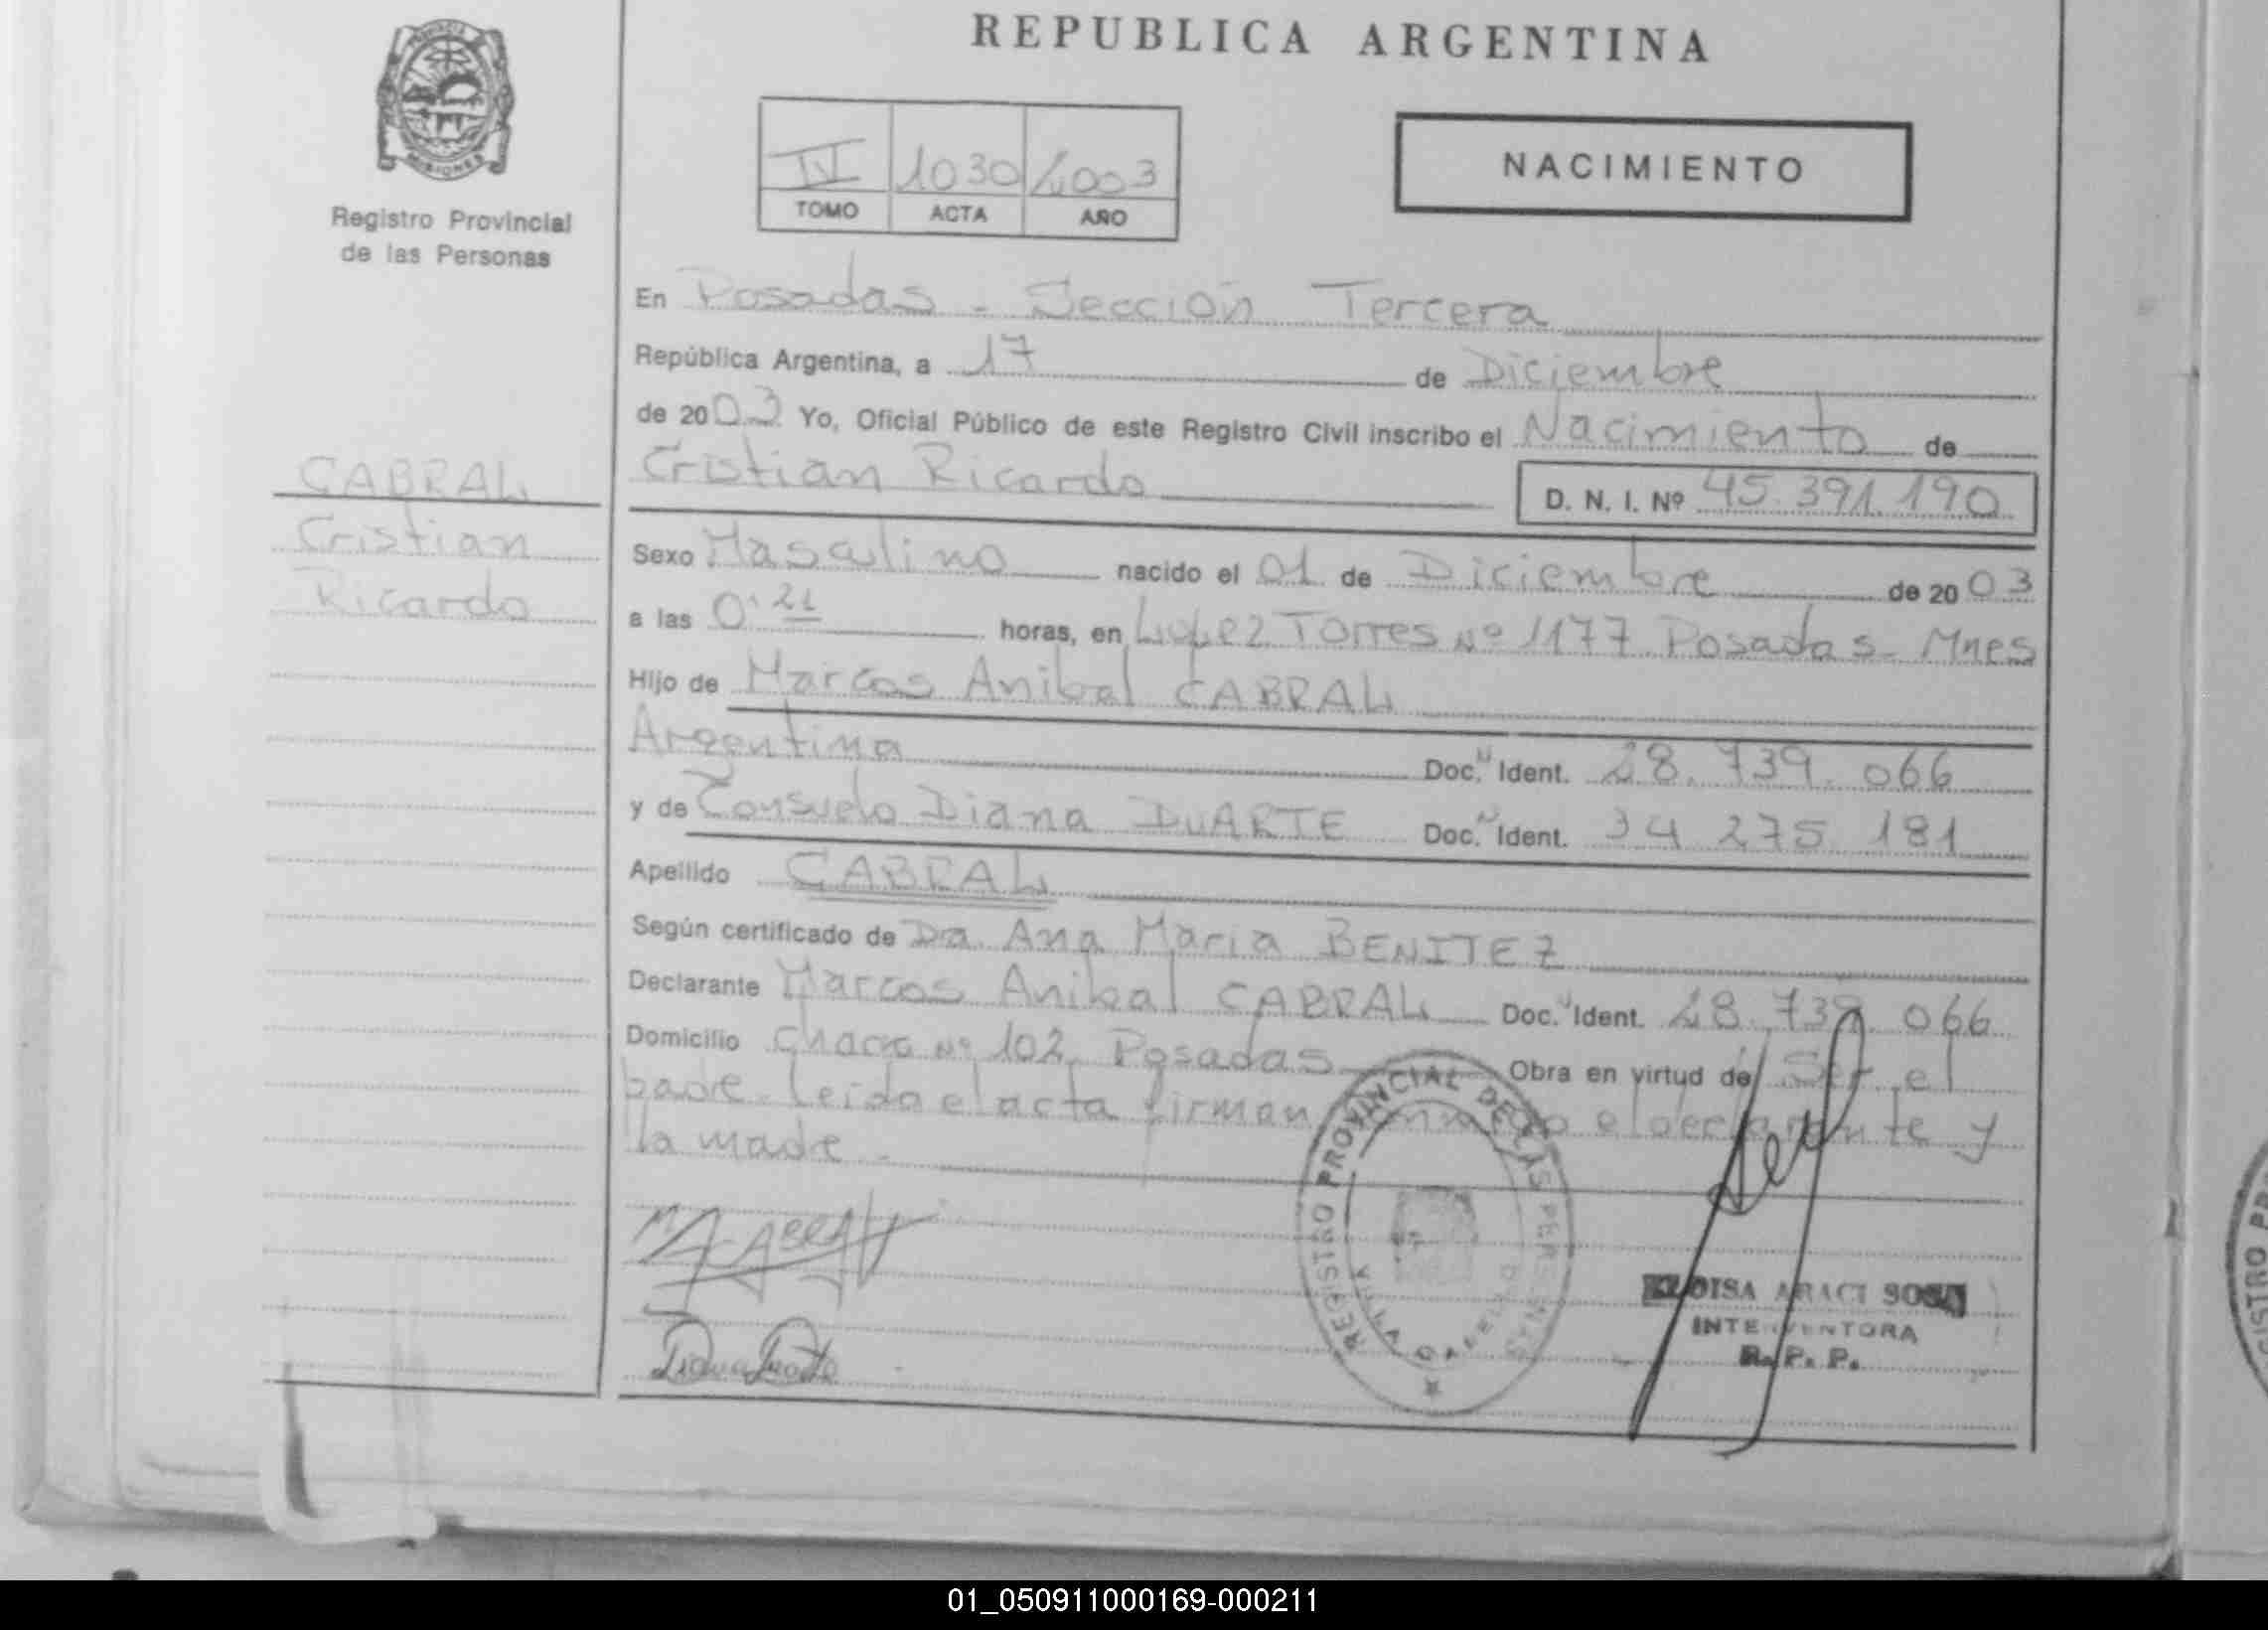 REPUBLICA ARGENTINA
PROVINCIA
MISIONES
Registro Provincial
de las Personas
IV 1030 2003
TOMO ACTA AÑO
NACIMIENTO
En Posadas - Sección Tercera
República Argentina, a 17 de Diciembre
de 2003 Yo, Oficial Público de este Registro Civil inscribo el Nacimiento de
CABRAL
Cristian
Ricardo
Cristian Ricardo D. N. I. Nº 45.391.190
Sexo Masculino nacido el 01 de Diciembre de 2003
a las 0:21 horas, en López Torres Nº 1177 Posadas - Mnes
Hijo de Marcos Anibal CABRAL
Argentina Doc. Ident. 28.739.066
y de Consuelo Diana DUARTE Doc. Ident. 34 275 181
Apellido CABRAL
Según certificado de Dra. Ana Maria BENITEZ
Declarante Marcos Anibal CABRAL Doc. Ident. 28.739 066
Domicilio Chaco Nº 102 Posadas Obra en virtud de Ser el
padre. Leida el acta firman conmigo el declarante y
la madre.
REGISTRO PROVINCIAL DE LAS PERSONAS
Diana Duarte
ELOISA ARACI SOSA
INTERVENTORA
R. P. P.
01_050911000169-000211